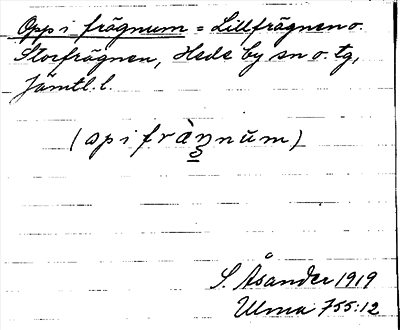 Opp i frägnum = Lillfrägnen o.
Storfrägnen, Hede by sn o. tg,
Jämtl. l.
(op i fràŋnŭm)
S. Åsander 1919
Ulma 755:12